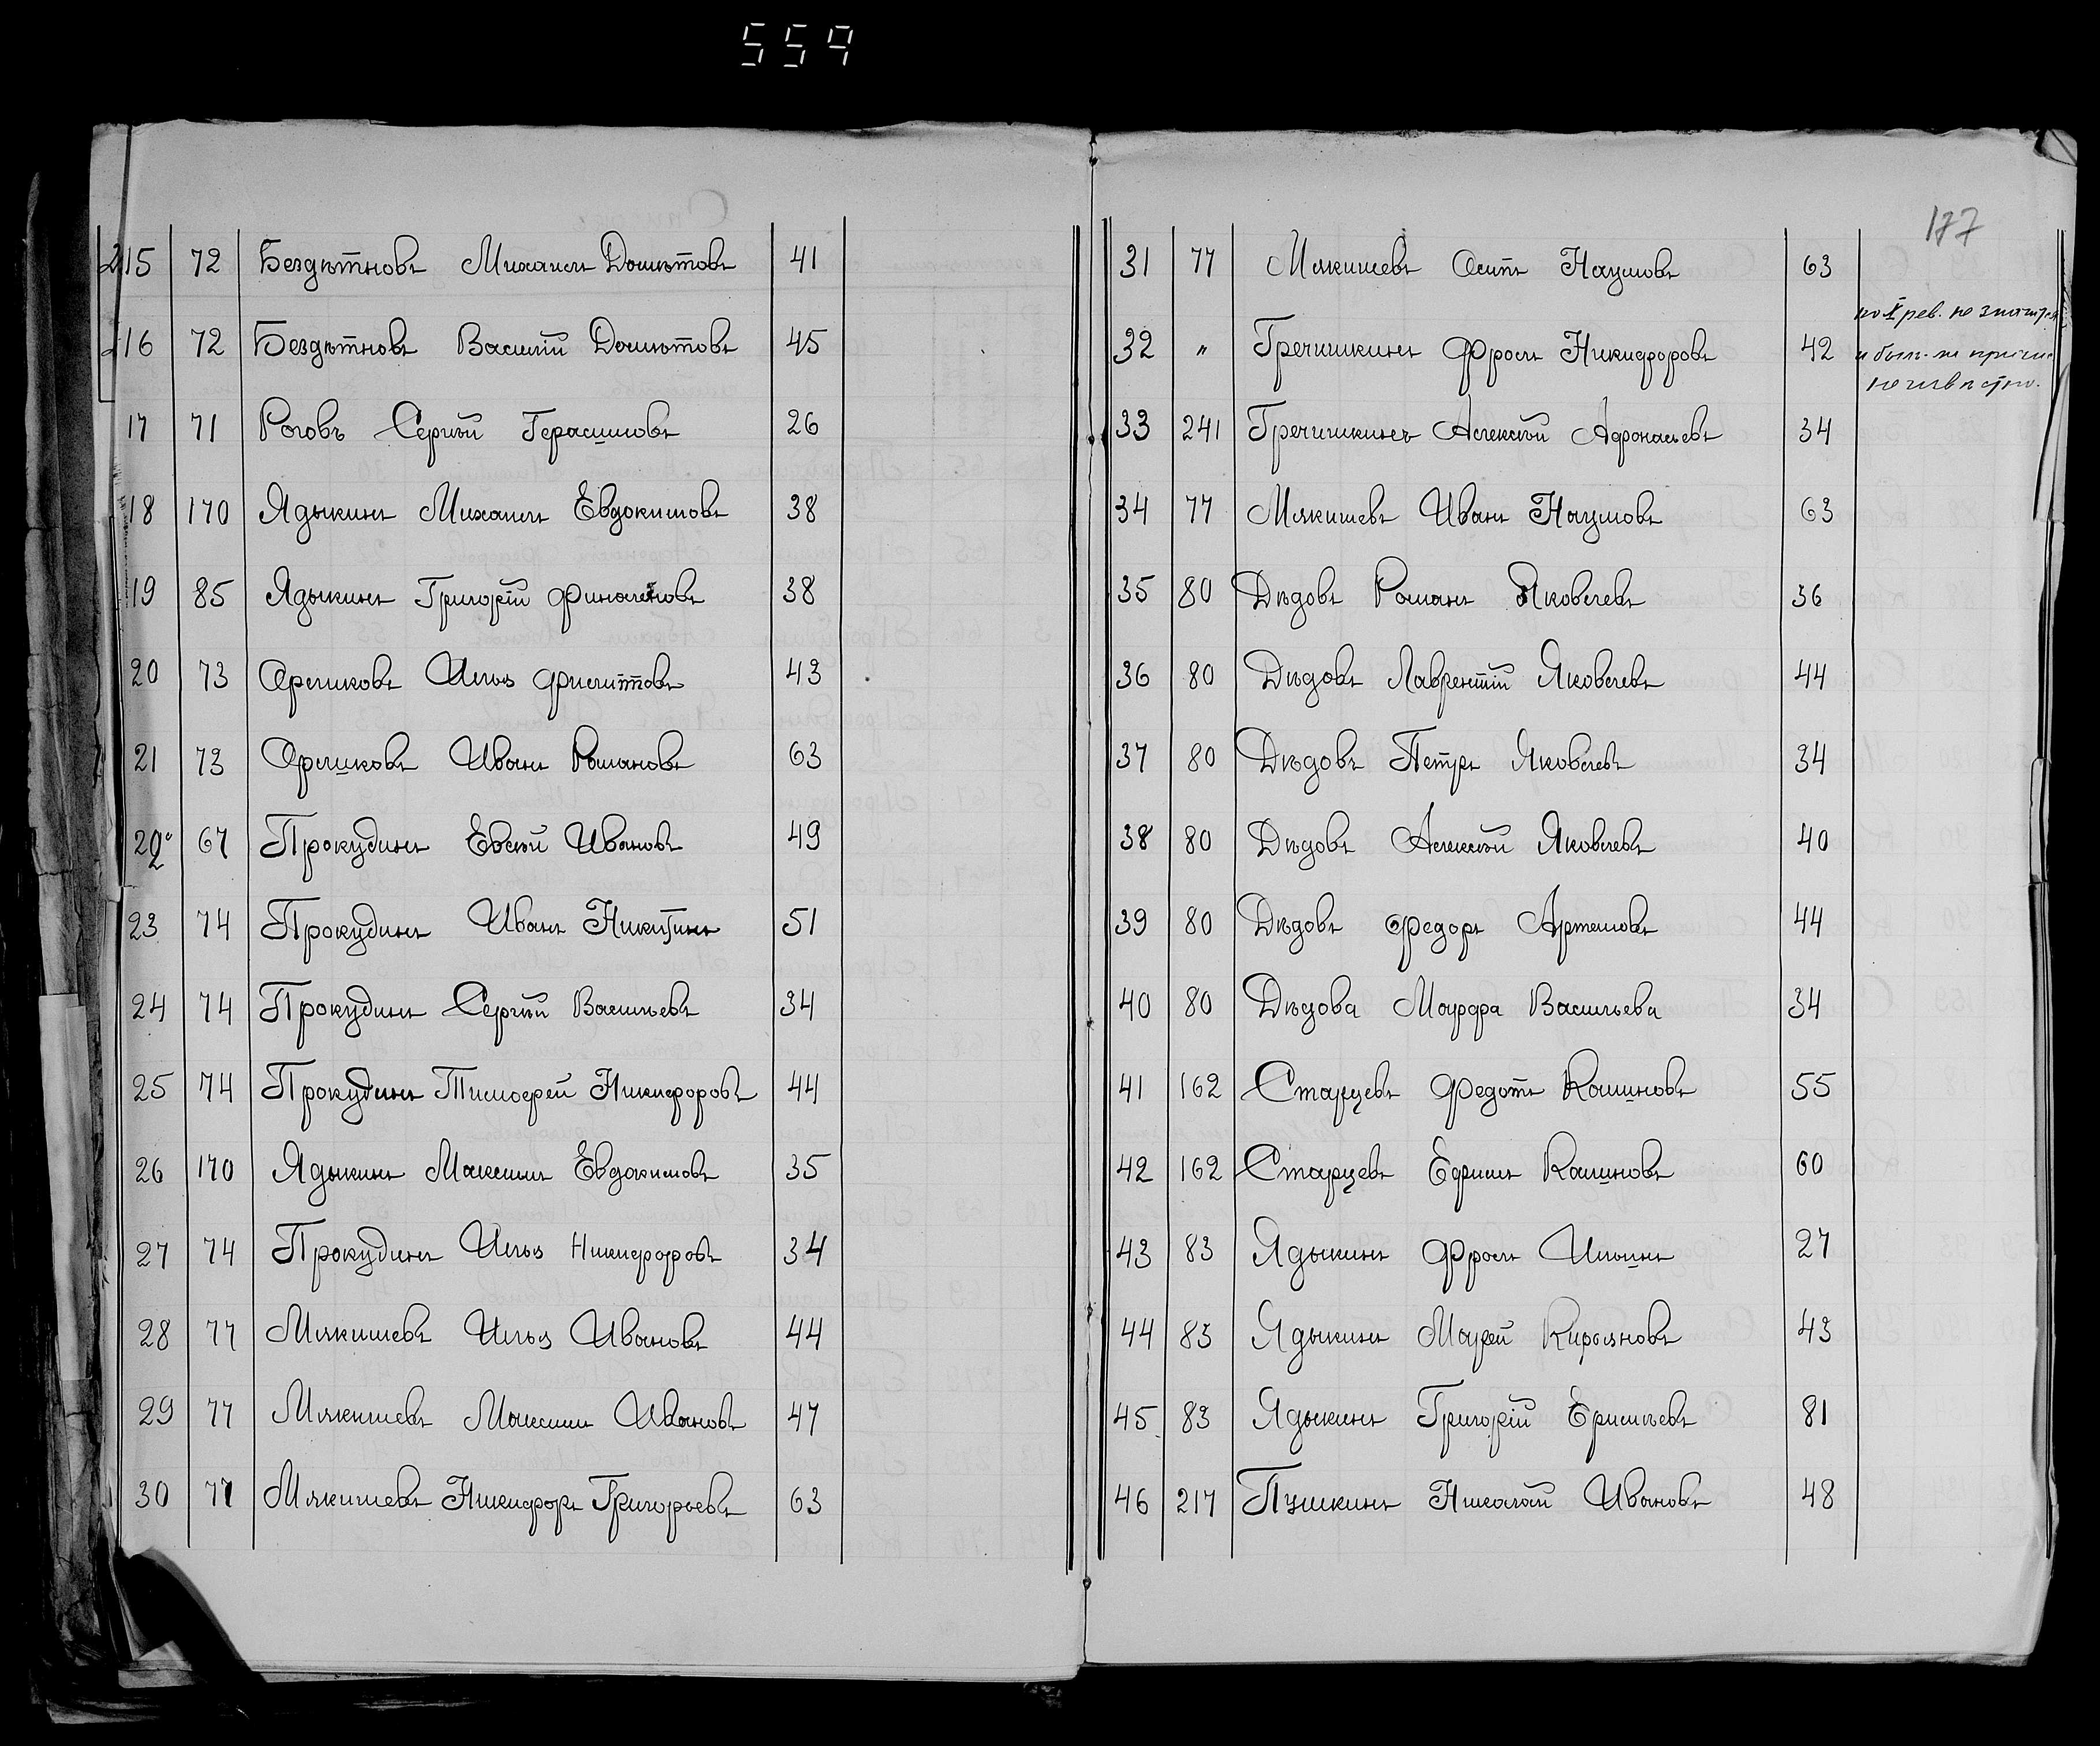 559
177
15 72 Бездѣтновъ Михаилъ Домнотовъ 41
16 72 Бездѣтновъ Василій Домнотовъ 45
17 71 Роговъ Сергѣй Герасимовъ 26
18 170 Ядыкинъ Михаилъ Евдокимовъ 38
19 85 Ядыкинъ Григорій 38
20 73 Орешковъ Илья Филиттовъ 43
21 73 Орешковъ Иванъ Романовъ 63
22 67 Прокудинъ Евсѣй Ивановъ 49
23 74 Прокудинъ Иванъ Никитинъ 51
24 74 Прокудинъ Сергѣй Васильевъ 34
25 74 Прокудинъ Тимофей Никифоровъ 44
26 170 Ядыкинъ Максимъ Евдокимовъ 35
27 74 Прокудинъ Илья Никифоровъ 34
28 77 Мякишевъ Илья Ивановъ 44
29 77 Мякишевъ Максимъ Ивановъ 47
30 77 Мякишевъ Никифоръ Григорьевъ 63
31 77 Мякишевъ Осипъ Наумовъ 63
по X рев. не значится
32 " Гречишкинъ Фролъ Никифоровъ 42
неизвѣстно.
33 241 Гречишкинъ Алексѣй Афонасьевъ 34
34 77 Мякишевъ Иванъ Наумовъ 63
35 80 Дѣдовъ Романъ Яковлевъ 36
36 80 Дѣдовъ Лаврентій Яковлевъ 44
37 80 Дѣдовъ Петръ Яковлевъ 34
38 80 Дѣдовъ Алексѣй Яковлевъ 40
39 80 Дѣдовъ Федоръ Артемовъ 44
40 80 Дѣдова Марфа Васильева 34
41 162 Старцевъ Федотъ Калиновъ 55
42 162 Старцевъ Ефимъ Калиновъ 60
43 83 Ядыкинъ Фролъ Ильинъ 27
44 83 Ядыкинъ Марѣй Кирьяновъ 43
45 83 Ядыкинъ Григорій Ермильевъ 81
46 217 Пушкинъ Николай Ивановъ 48